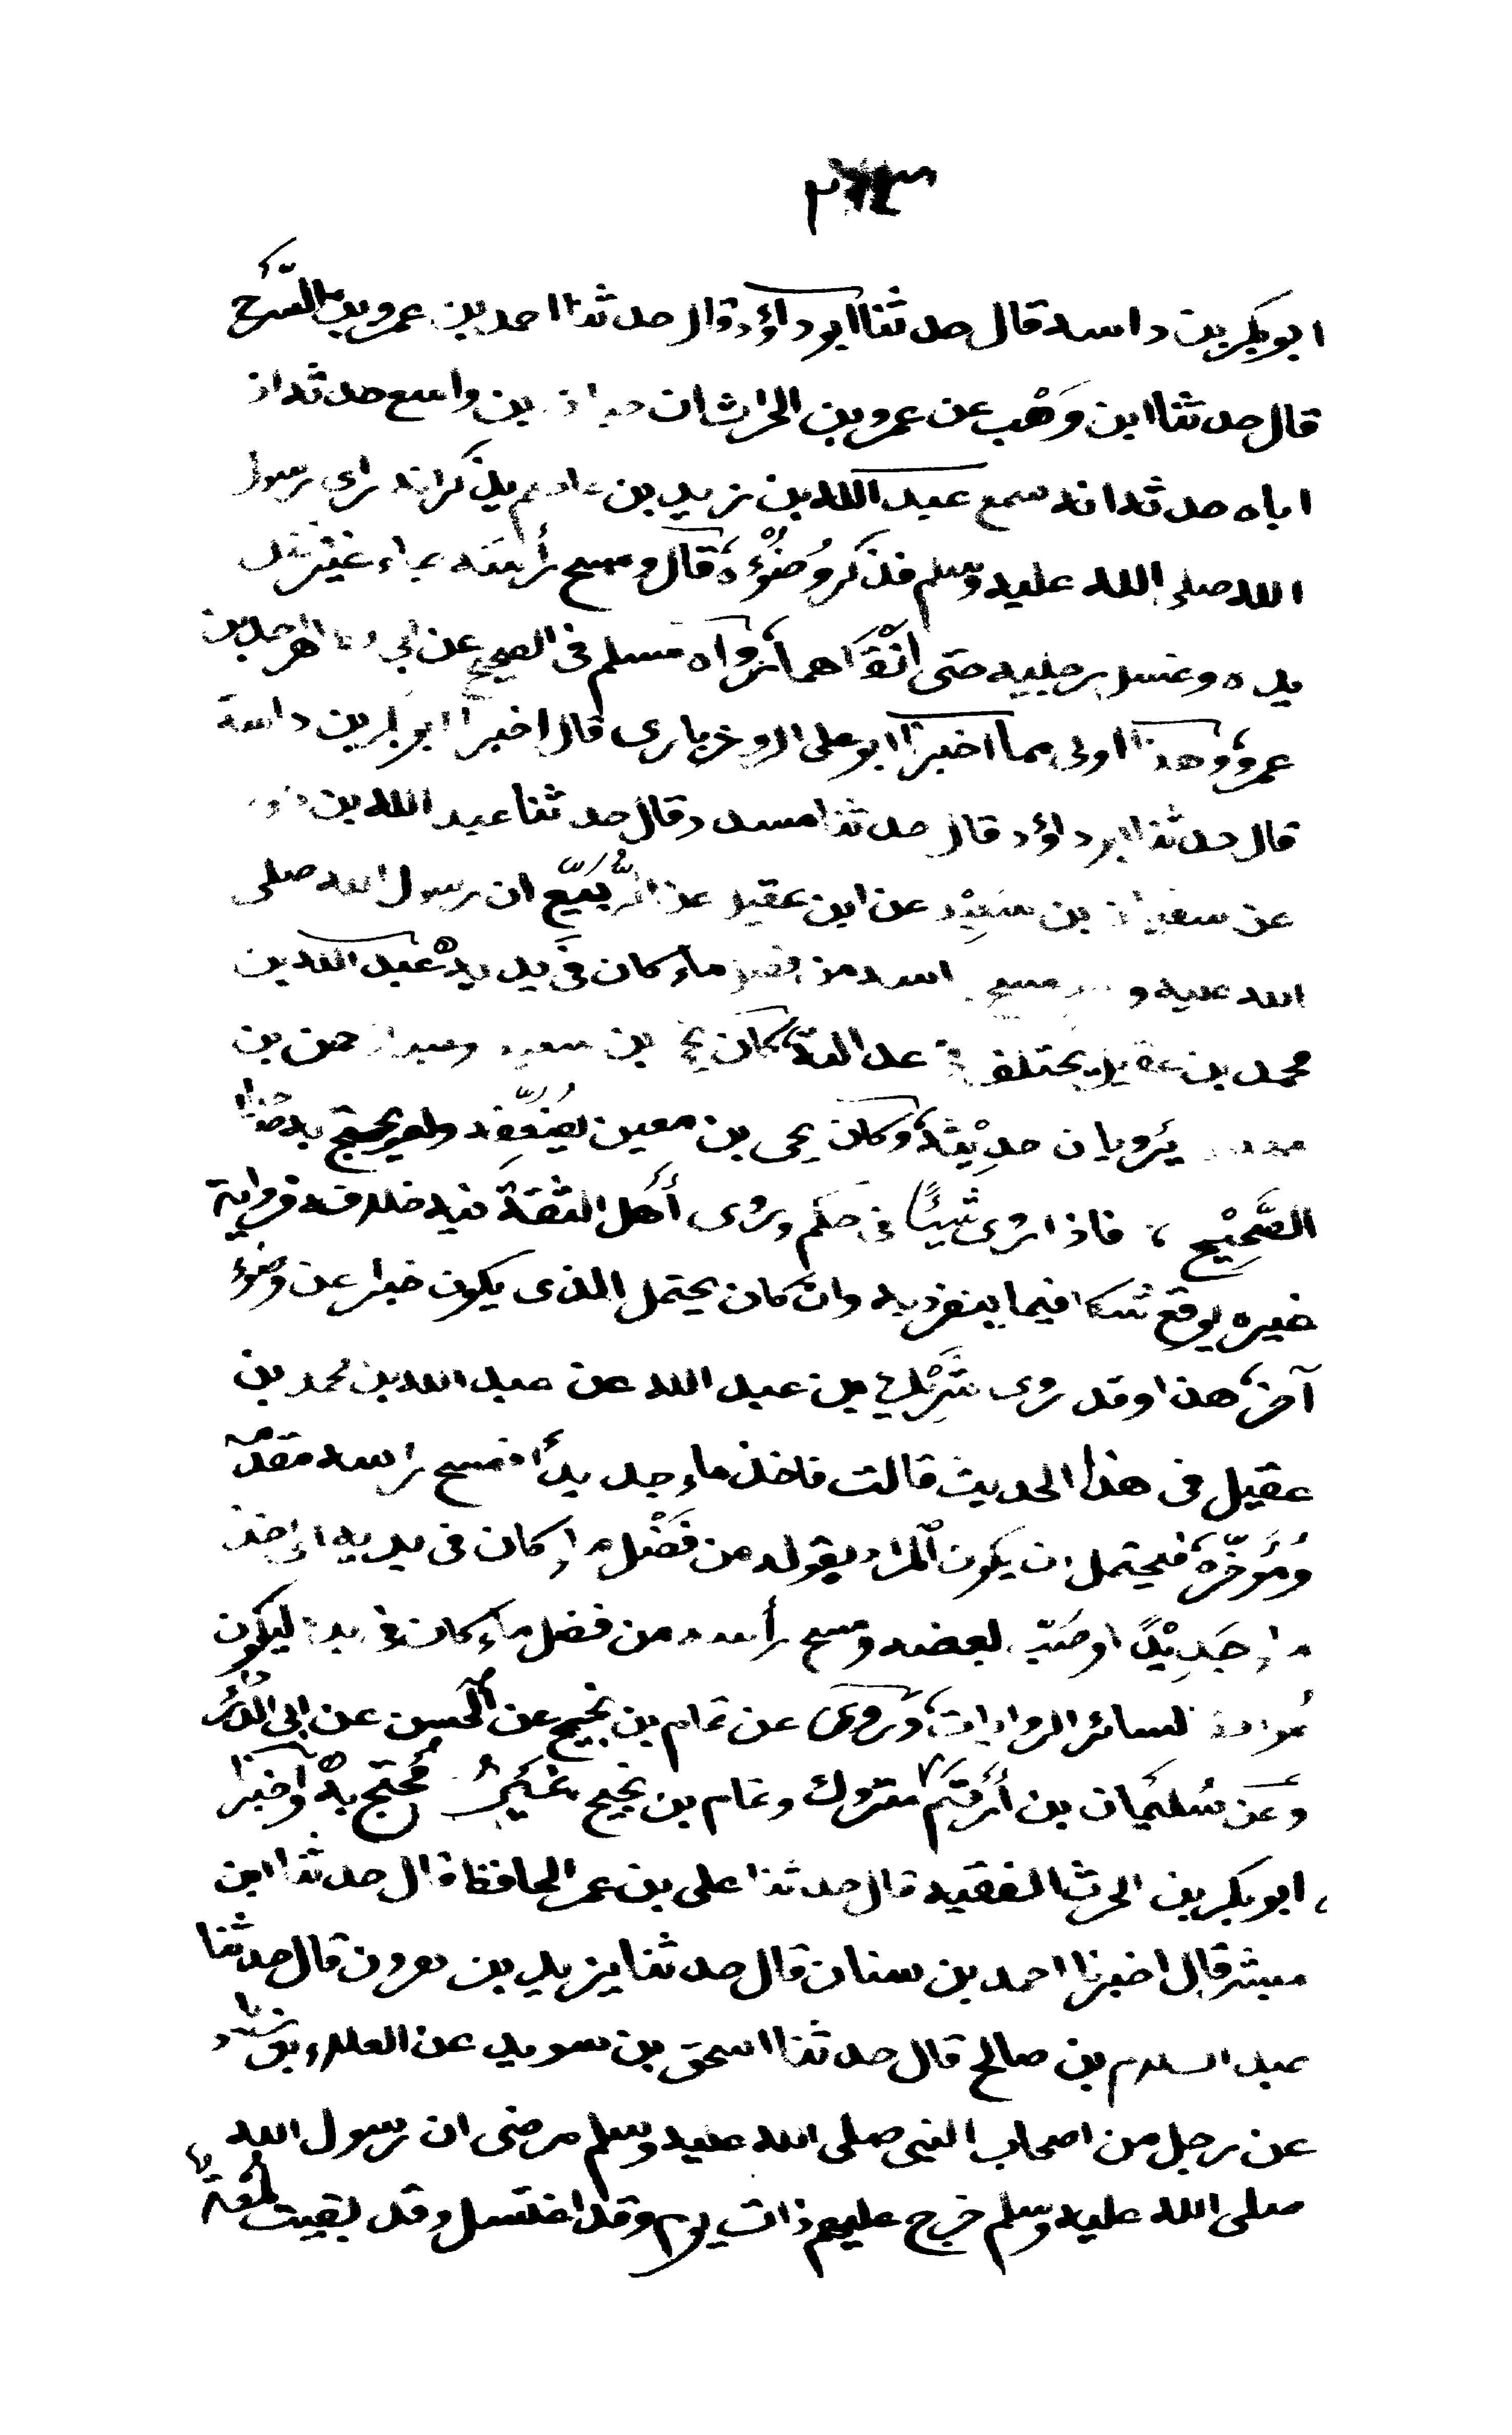 ابوبكر بن داسه قال حدثنا ابوداؤد قال حدثنا احمد بن عمرو بن السَّرح
قال حدثنا ابن وَهْب عن عمرو بن الحرث ان بن واسع حدثه ان
اباه حدثه انه سمع عبد الله بن زيد بن عاصم يذكر انه راى رسول
الله صلى الله عليه وسلم فذكر وُضُوْءه، قال ومسح رأسَه بماء غير فضل
يده وغسل رجليه حتى اَنْقَاهما، رواه مسلم فى الصحيح عن ابى الطاهر احمد بن
عمرو، وهذا اولى مما اخبرنا ابو على الروذبارى قال اخبرنا ابوبكر بن داسة
قال حدثنا ابوداؤد قال حدثنا مسدد قال حدثنا عبد الله بن داود
عن سفيان بن سَعِيْد عن ابن عقيل عن الرُّبَيِّع ان رسول الله صلى
الله عليه و مسح من فضل ماء كان فى يديه عبد الله بن
محمد بن عقيل يختلف فى عدالته، كان يحيى بن سعيد وعبد الرحمن بن
يَرويان حدِيْثَه، وكان يحيى بن معين يُضَعِّفه ولم يحتج به صاحبا
الصَّحِيْح، فاذا روى شَيئًا فى حكم وروى أهل الثقة فيه خلافه فرواية
غيره يوقع شكا فيما ينفرد به وان كان يحتمل الذى يكون خبرا عن وضوء
آخر، هذا وقد روى شَرِيْك بن عبد الله عن عبد الله بن محمد بن
عقيل فى هذا الحديث قالت فاخذ ماء جديدًا فمسح راسه مقدّمه
ومُؤَخَّره، فيحتمل ان يكون المراد بقوله من فَضْل ماء كان فى يديه اى اخذ
ماء جَدِيْدًا وصَبَّ بعضه ومسح رأسه من فضل ماء كان فى يده ليكون
موافقا لسائر الروايات، وروى عن تمام بن نجيح عن الحسن عن ابى الدرداء
وعن سُلَيمان بن أرْقَم متروك وتمام بن نجيح غَيرُ مُحتج به، وأخبرنا
ابوبكر بن الحرث الفقيه قال حدثنا على بن عمر الحافظ قال حدثنا ابن
مبشر قال اخبرنا احمد بن سنان قال حدثنا يزيد بن هرون قال حدثنا
عبد السلام بن صالح قال حدثنا اسحق بن سويد عن العلاء بن زياد
عن رجل من اصحاب النبى صلى الله عليه وسلم مرضى ان رسول الله
صلى الله عليه وسلم خرج عليهم ذات يوم وقد اغتسل وقد بقيت لُمْعَةٌ